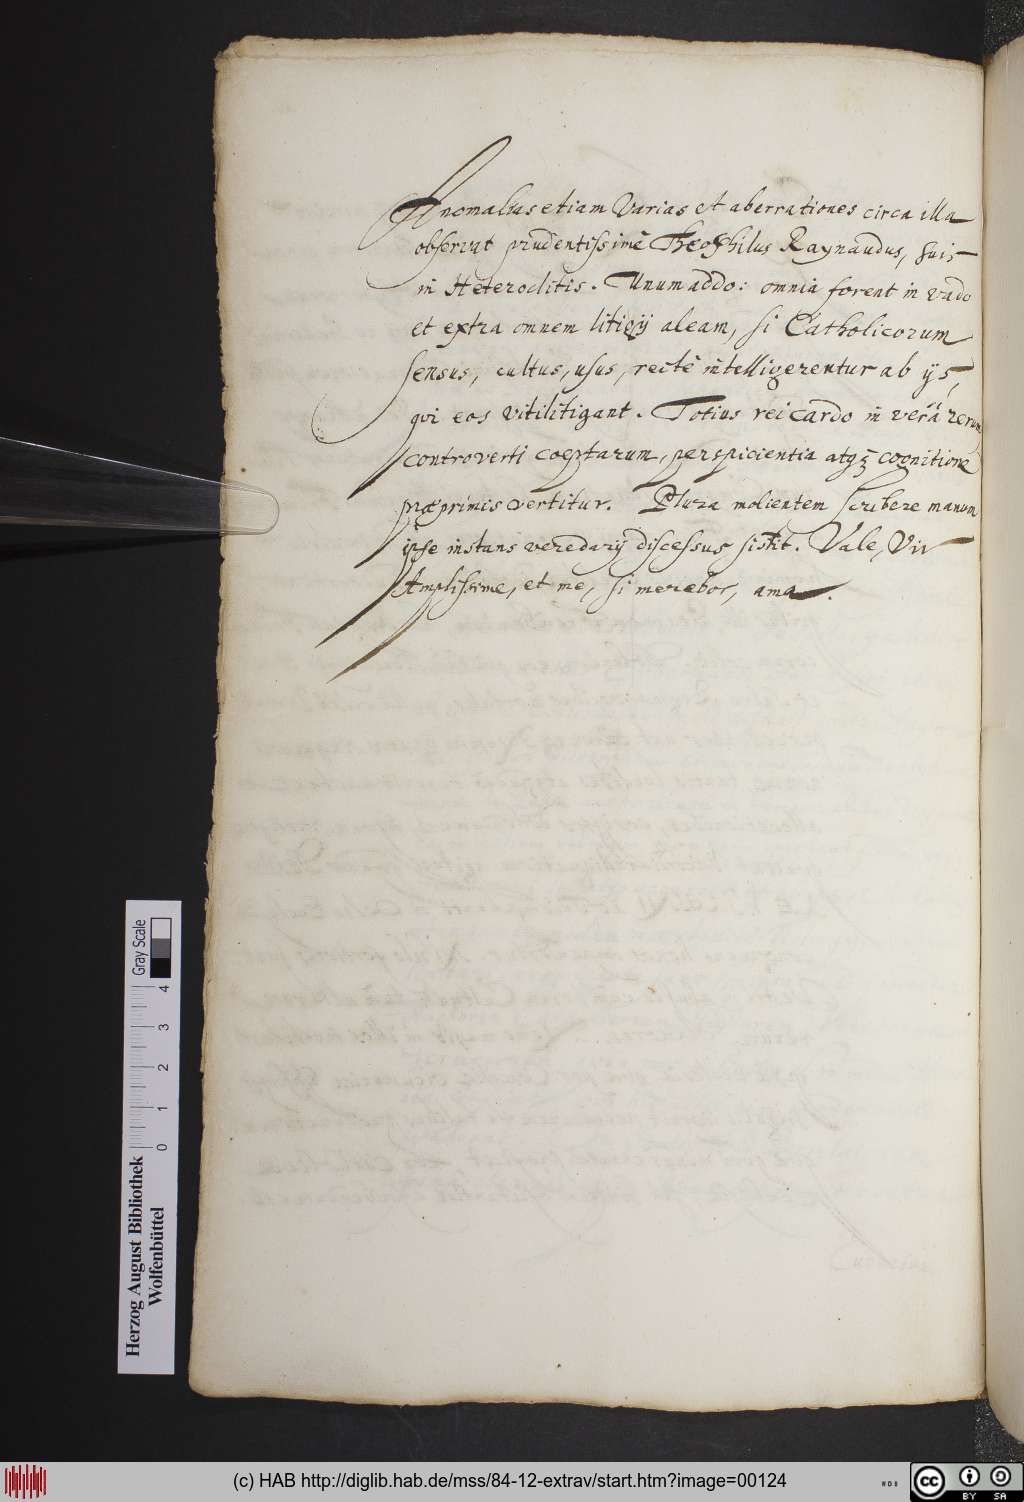 Anomalias etiam Varias et aberrationes circa illa
observat prudentissimè Theophilus Raynaudus, suis
in Heteroclitis. Unum addo: omnia forent in vado
et extra omnem litigij aleam, si Catholicorum
sensus, cultus, usus, rectè intelligerentur ab ijs,
qui eos vitilitigant. Totius rei cardo in verâ rerum
controverti coeptarum, perspicientia atq3 cognitione
præprimis vertitur. Plura molientem scribere manum
ipse instans veredarij discessus sistit. Vale, Vir
Amplissime, et me, si merebor, ama.
Gray Scale
0 1 2 3 4
Herzog August Bibliothek
Wolfenbüttel
(c) HAB http://diglib.hab.de/mss/84-12-extrav/start.htm?image=00124
WDB
cc BY SA